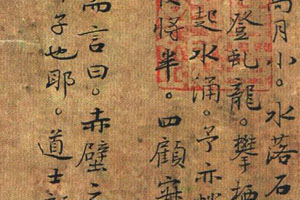 高月小。水落石
登虬龍。攀栖
起水涌。予亦
將半。四顧寂
而言曰。赤壁之
子也耶。道士